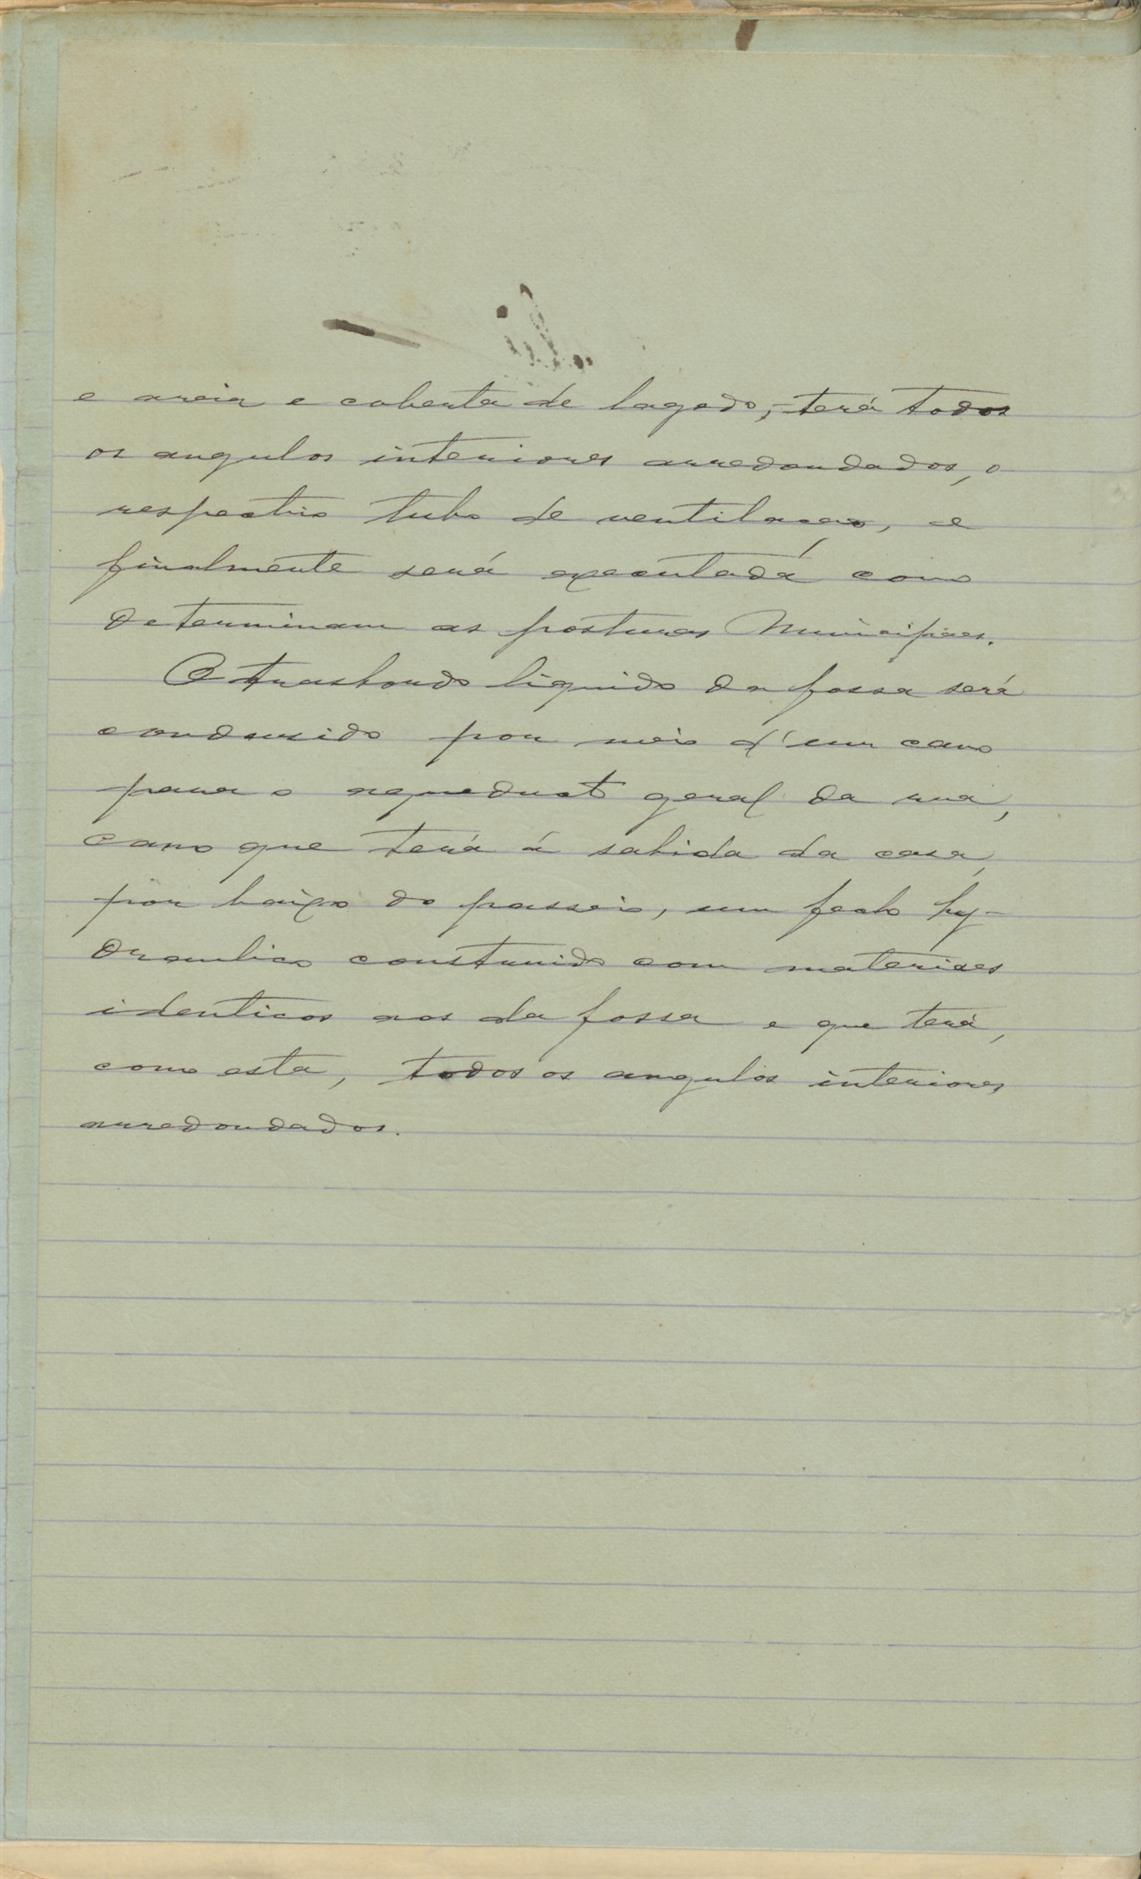 e areia e coberta de lagedo, terá todos
os angulos interiores arredondados, o
respectivo tubo de ventilação, e
finalmente será executada como
determinam as posturas Municipaes.
O trasbordo liquido da fossa será
condusido por meio d'um cano
para o aqueducto geral da rua,
cano que terá á sahida da casa,
por baixo do passeio, um fecho hy-
draulico construido com materiaes
identicos aos da fossa e que terá,
como esta, todos os angulos interiores
arredondados.